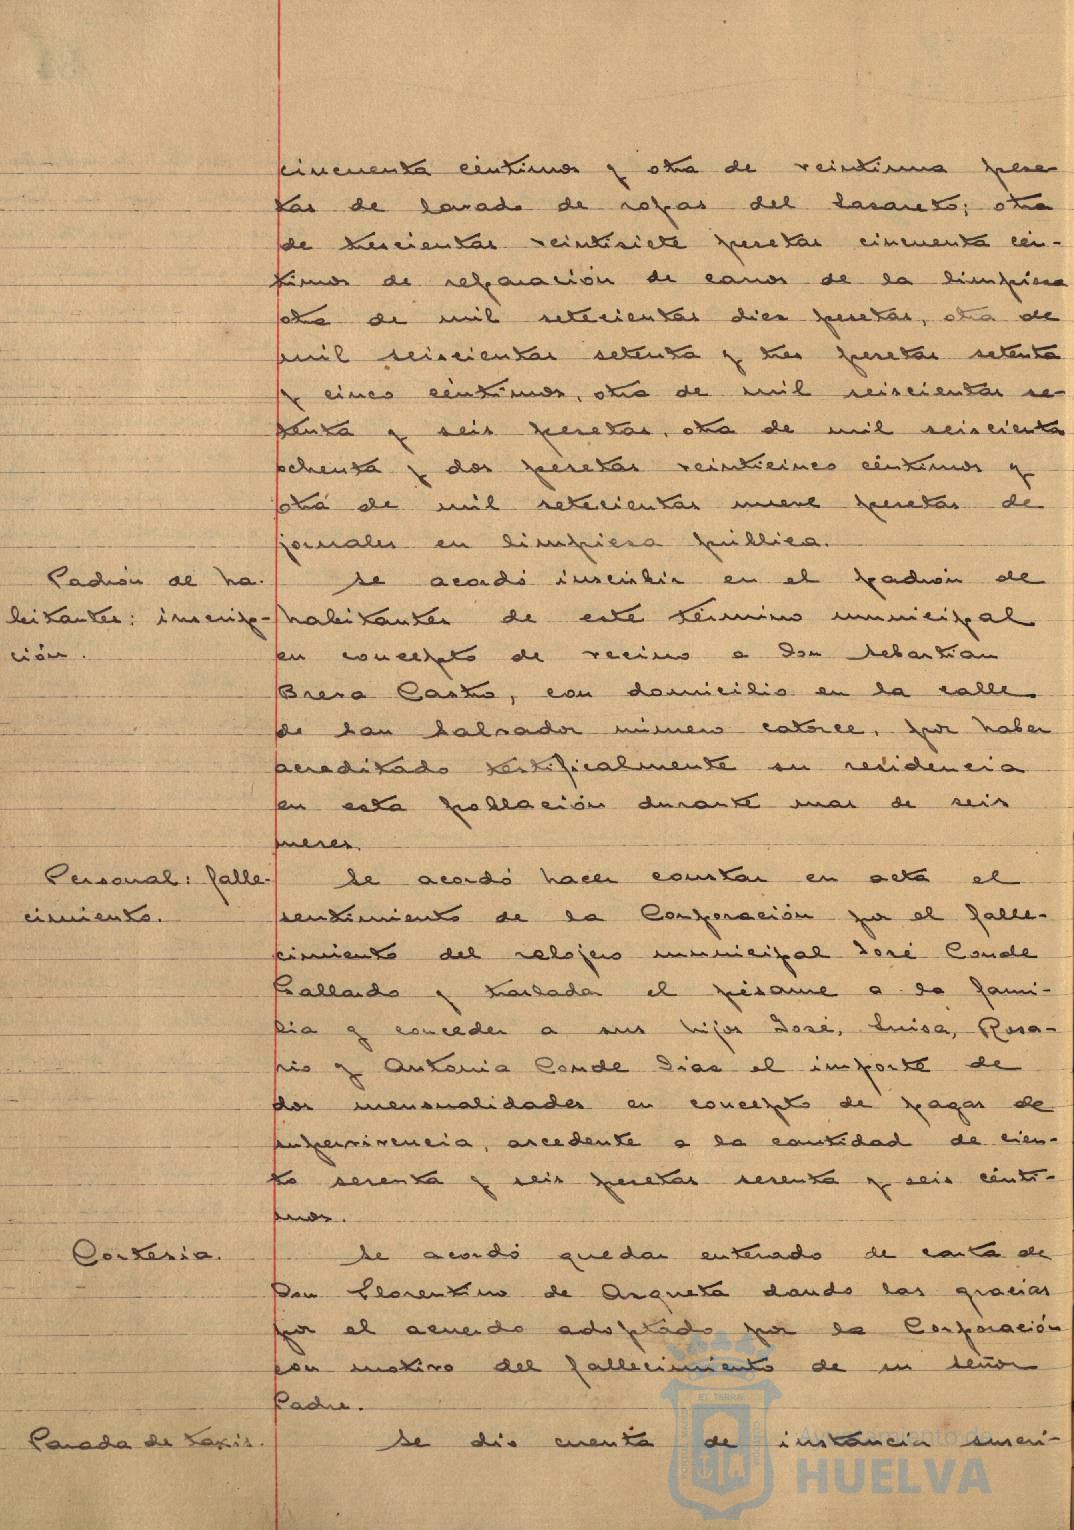 cincuenta céntimos y otra de veintiuna pese-
tas de lavado de ropas del Lazareto; otra
de trescientas veintisiete pesetas cincuenta cén-
timos de reparación de carros de la limpieza
otra de mil setecientas diez pesetas, otra de
mil seiscientas setenta y tres pesetas setenta
y cinco céntimos, otra de mil seiscientas se-
tenta y seis pesetas, otra de mil seiscientas
ochenta y dos pesetas veinticinco céntimos y
otra de mil setecientas nueve pesetas de
jornales en limpieza pública.
Padrón de ha-
bitantes: inscrip-
ción.
Se acordó inscribir en el padrón de
habitantes de este término municipal
en concepto de vecino a Don Sebastian
Brera Castro, con domicilio en la calle
de San Salvador número catorce, por haber
acreditado testificalmente su residencia
en esta población durante mas de seis
meses.
Personal: falle-
cimiento.
Se acordó hacer constar en acta el
sentimiento de la Corporación por el falle-
cimiento del relojero municipal José Conde
Gallardo y trasladar el pésame a la fami-
lia y conceder a sus hijos José, Luisa, Rosa-
rio y Antonia Conde Diaz el importe de
dos mensualidades en concepto de pagas de
supervivencia, ascedente a la cantidad de cien-
to sesenta y seis pesetas sesenta y seis cénti-
mos.
Cortesia.
Se acordó quedar enterado de carta de
Don Florentino de Azqueta dando las gracias
por el acuerdo adoptado por la Corporación
con motivo del fallecimiento de su Señor
Padre.
Parada de taxis.
Se dio cuenta de instancia suscri-
Ayuntamiento de
HUELVA